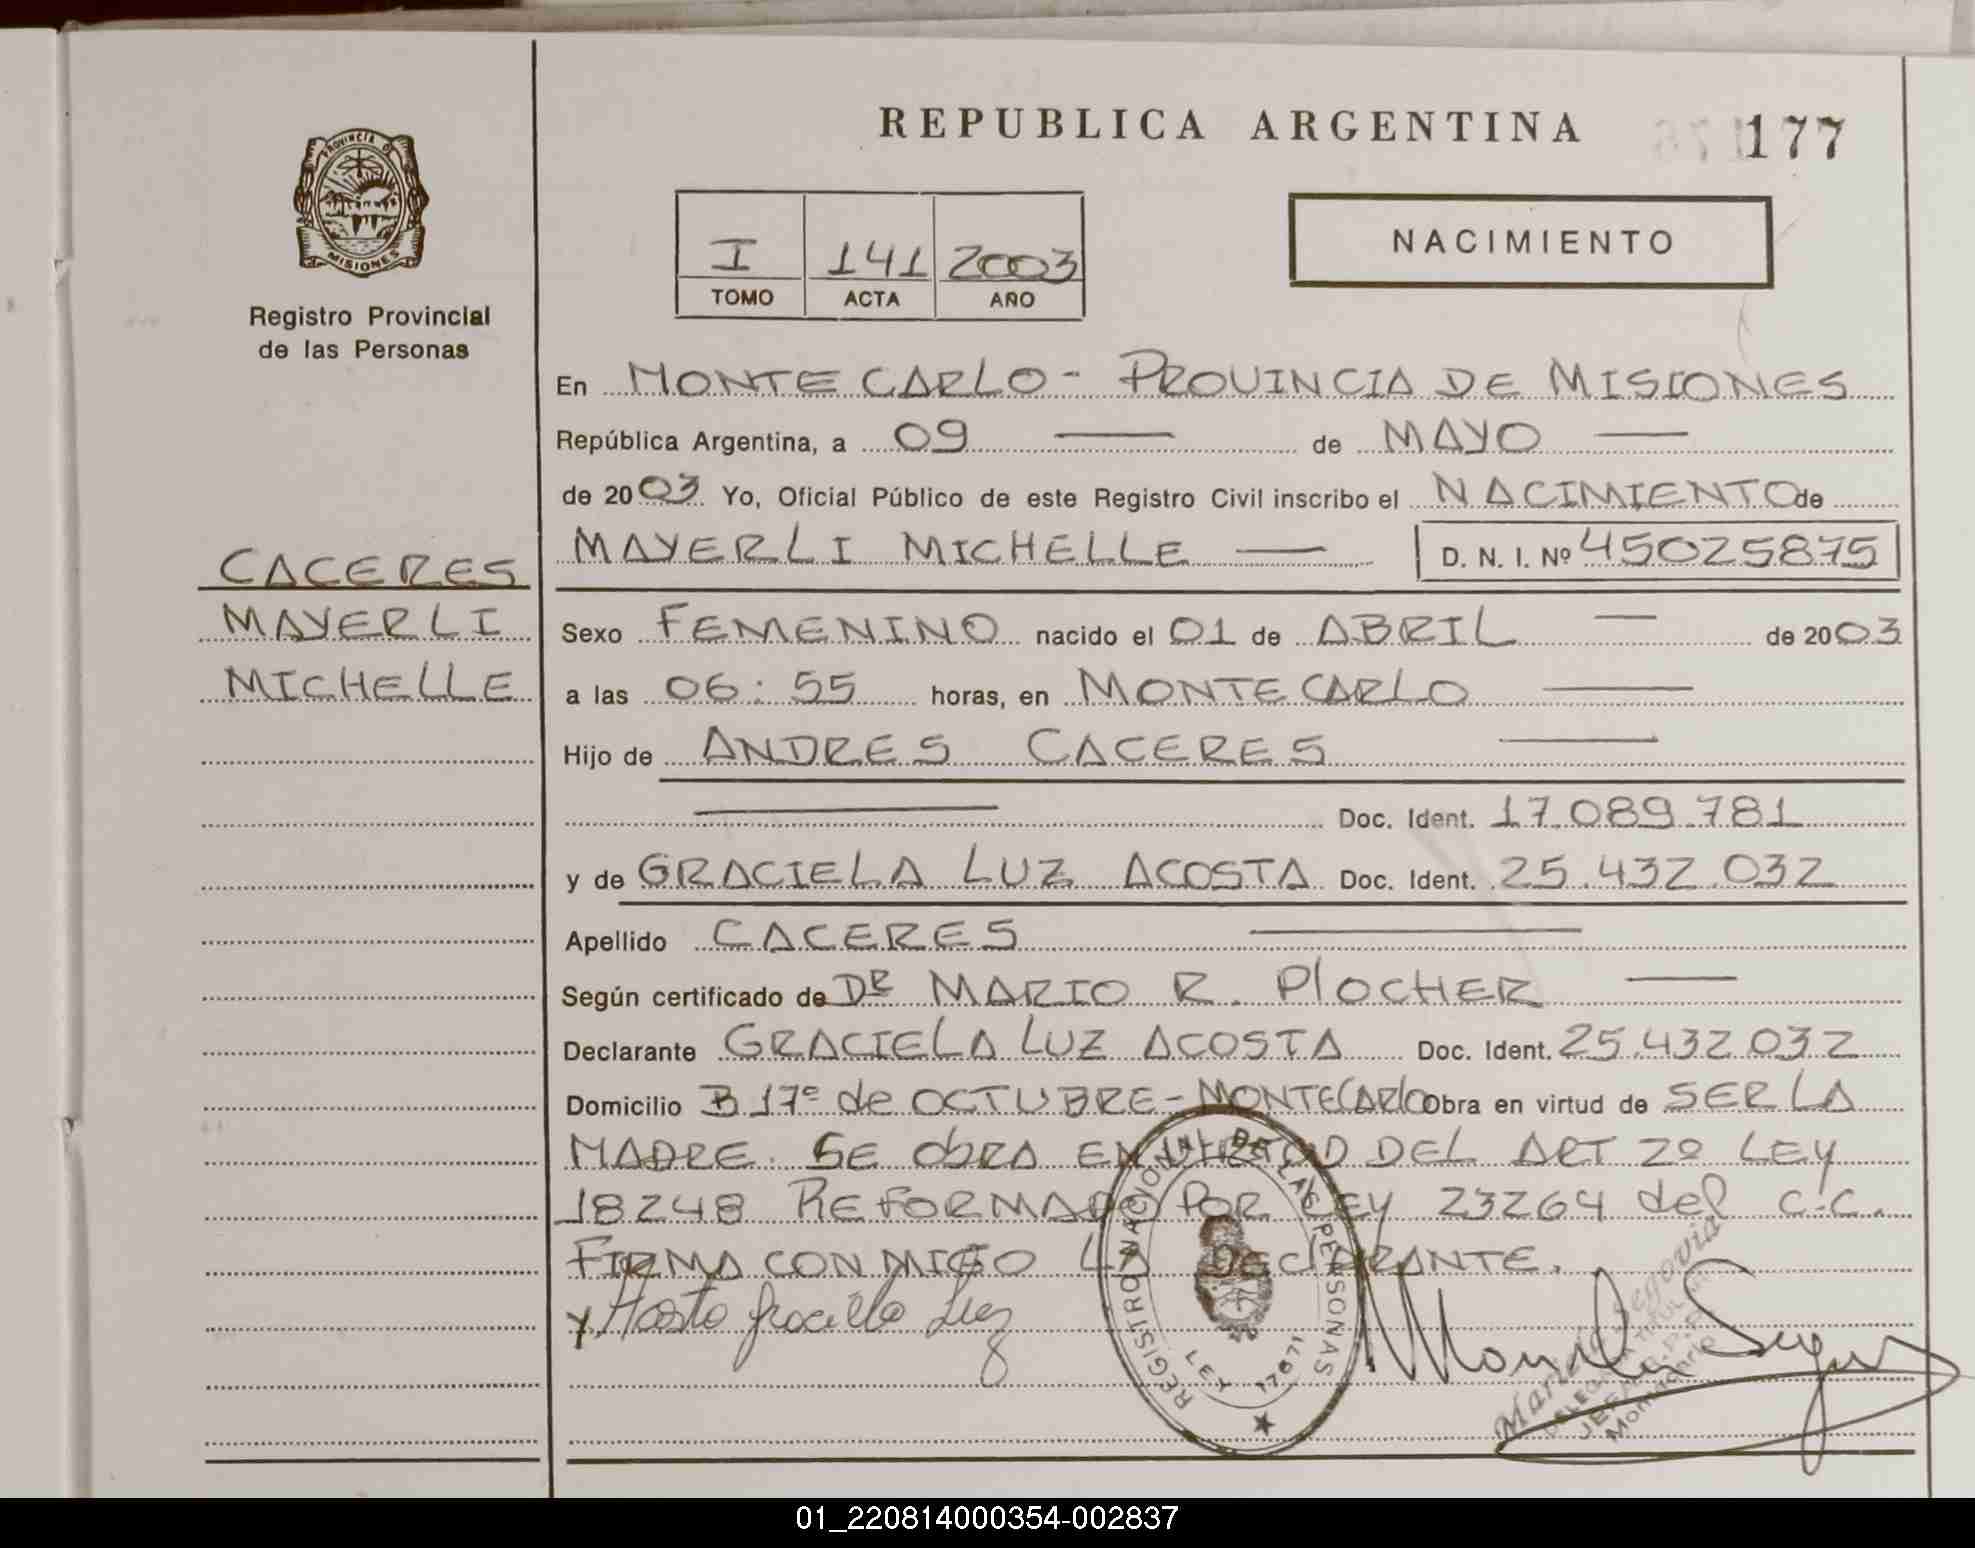 REPUBLICA ARGENTINA
177
PROVINCIA DE
MISIONES
Registro Provincial
de las Personas
I 141 2003
TOMO ACTA AÑO
NACIMIENTO
En MONTECARLO - PROVINCIA DE MISIONES
República Argentina, a 09 de MAYO
de 2003 Yo, Oficial Público de este Registro Civil inscribo el NACIMIENTO de
MAYERLI MICHELLE D. N. I. Nº 45025875
CACERES
MAYERLI
MICHELLE
Sexo FEMENINO nacido el 01 de ABRIL de 2003
a las 06:55 horas, en MONTECARLO
Hijo de ANDRES CACERES
Doc. Ident. 17.089.781
y de GRACIELA LUZ ACOSTA Doc. Ident. 25.432.032
Apellido CACERES
Según certificado de DR MARIO R. PlOCHER
Declarante GRACIELA LUZ ACOSTA Doc. Ident. 25.432.032
Domicilio B 17º de OCTUBRE - MONTECARLO Obra en virtud de SER LA
MADRE. SE ObRA EN VIRTUD DEL ART 2º LEY
18248 REFORMADO POR LEY 23264 del C.C.
FIRMA CONMIGO LA DECLARANTE.
REGISTRO NACIONAL DE LAS PERSONAS
LEY 17671
Segovia
Montecarlo
01_220814000354-002837